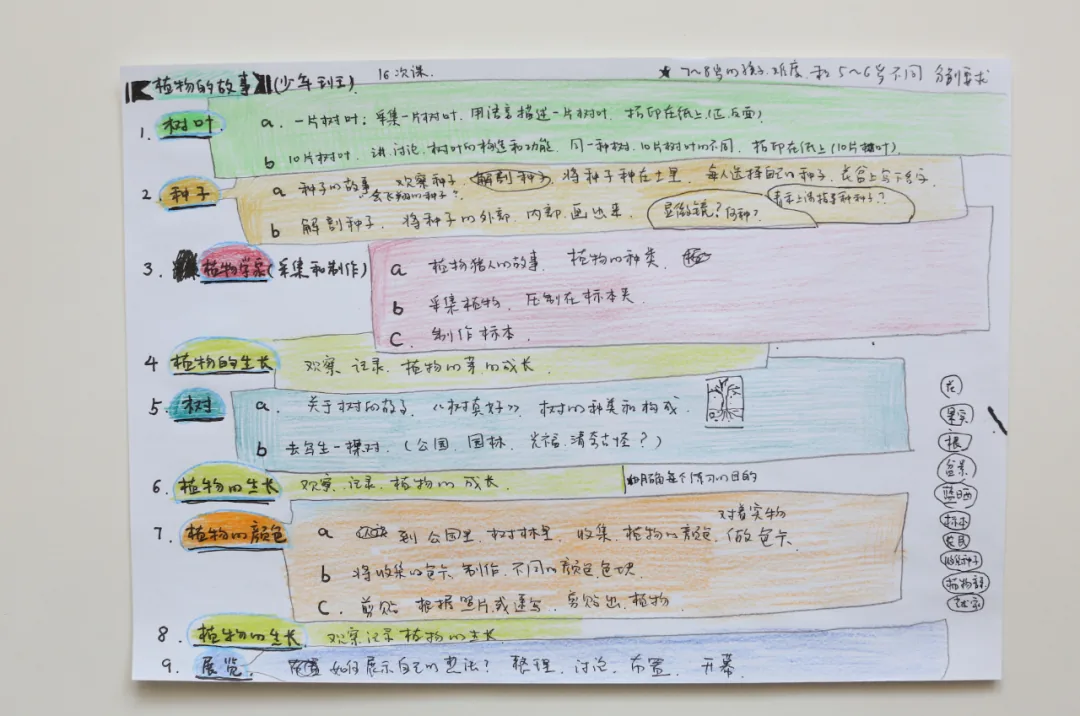 植物的故事 (少年班) 16次课. ★ 7~8岁的孩子难度和5~6岁不同 分别要求
1. 树叶 a. 一片树叶; 采集一片树叶. 用语言描述一片树叶. 拓印在纸上(正反面)
b 10片树叶. 讲讨论. 树叶的构造和功能. 同一种树. 10片树叶的不同. 拓印在纸上(10片树叶)
2. 种子 a 种子的故事 观察种子. 解剖种子 将种子种在土里. 每人选择自己的种子. 在盆上写下名字
会长翅的种子?
b 解剖种子. 将种子的外部. 内部. 画出来. 显微镜? 何种?
3. 植物学家(采集和制作) a 植物猎人的故事. 植物的种类.
b 采集植物. 压制在标本夹
C. 制作标本.
4 植物的生长 观察 记录. 植物的芽的成长.
5. 树 a. 关于树的故事 《树真好》. 树的种类和构成.
b 去写生一棵树. (公园. 园林. 光福.清奇古怪?)
6. 植物的生长 观察 记录. 植物的成长. 明确每个练习的目的
7. 植物的颜色 a 到公园里. 树林里. 收集植物的颜色. 做色卡. 对着实物
b 将收集的色卡. 制作. 不同的颜色色块.
C. 剪贴 根据照片或速写. 剪贴出. 植物.
8. 植物的生长 观察记录植物的生长
9. 展览. 如何展示自己的想法? 整理. 讨论. 布置. 开幕.
花
果实
根
盆景
蓝晒
标本
农民
植物